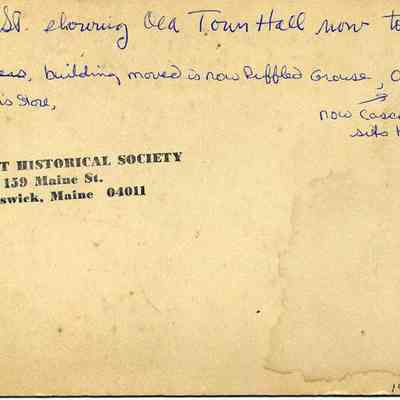 St. showing Old Town Hall now to
ess, building moved is now Ruffled Grouse, O
is Store,
now Casca
sits h
T HISTORICAL SOCIETY
159 Maine St.
swick, Maine 04011
19